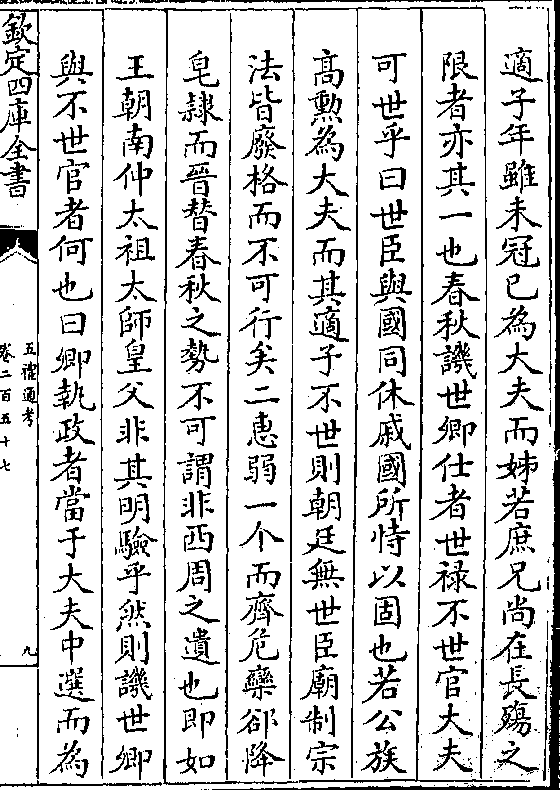 適子年雖未冠已為大夫而姊若庶兄尚在長殤之
限者亦其一也春秋譏世卿仕者世禄不世官大夫
可世乎曰世臣與國同休戚國所恃以固也若公族
髙勲為大夫而其適子不世則朝廷無世臣廟制宗
法皆廢格而不可行矣二惠弱一个而齊危欒郤降
皂隷而晉替春秋之勢不可謂非西周之遺也即如
王朝南仲太祖太師皇父非其明驗乎然則譏世卿
與不世官者何也曰卿執政者當于大夫中選而為
欽定四庫全書
五禮通考
卷二百五十七
九